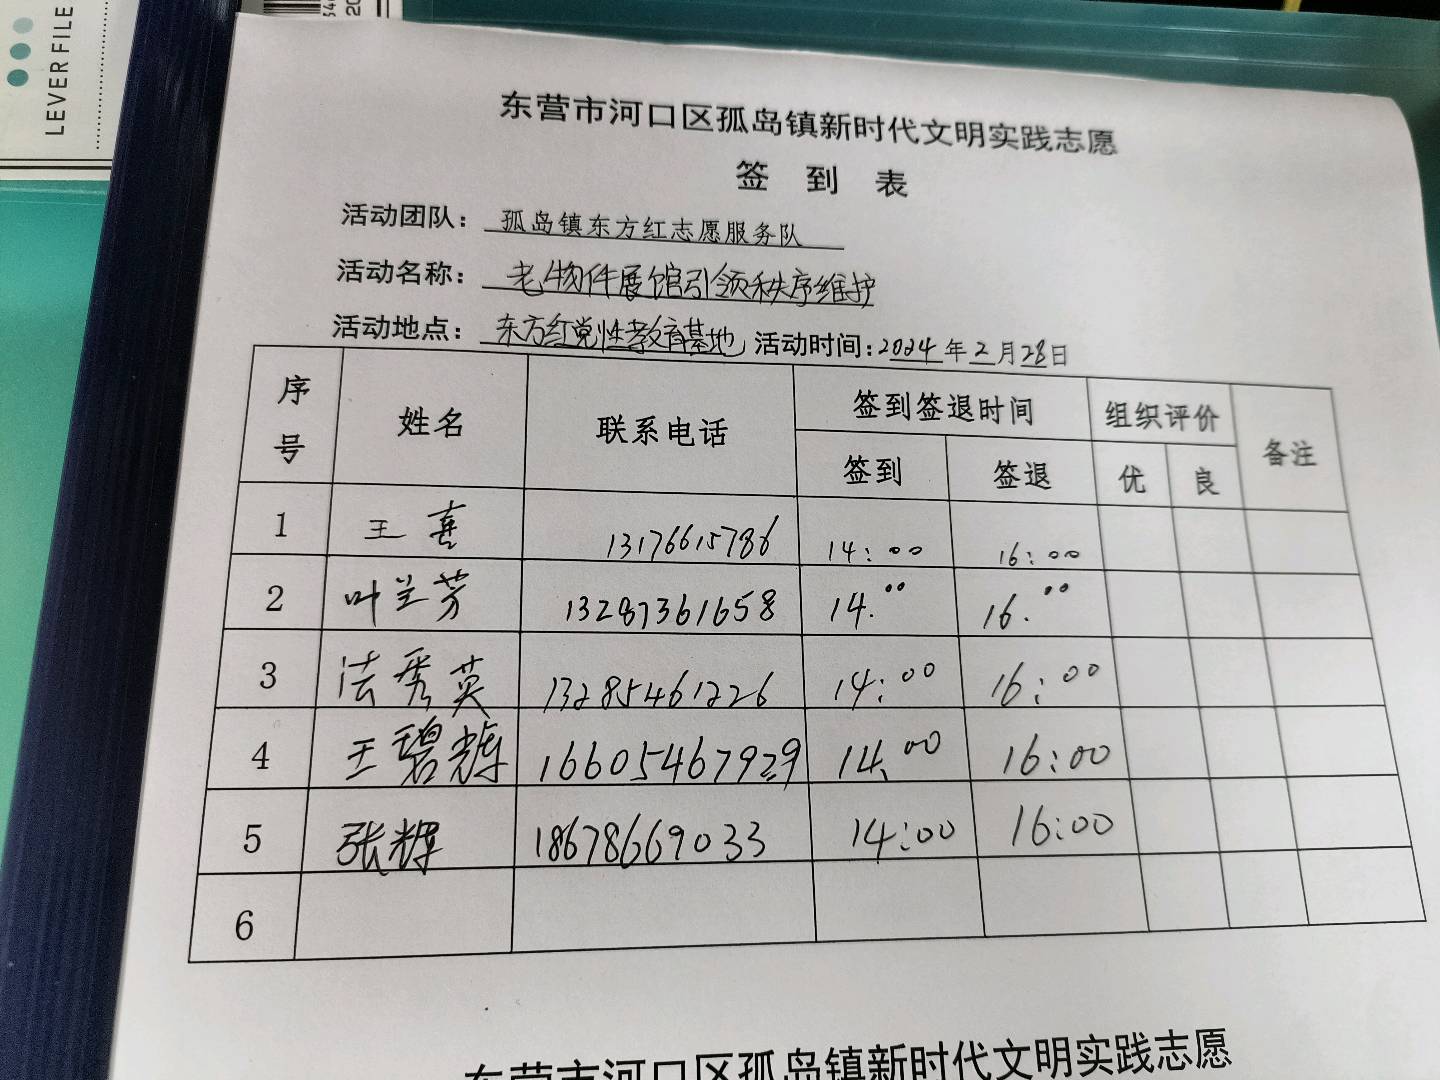 LEVER FILE
东营市河口区孤岛镇新时代文明实践志愿
签 到 表
活动团队：孤岛镇东方红志愿服务队
活动名称：老物件展馆引领秩序维护
活动地点：东方红党性教育基地 活动时间：2024年2月28日
序号 姓名 联系电话 签到签退时间 组织评价 备注
签到 签退 优 良
1 王喜 13176615786 14:00 16:00
2 叶兰芳 13287361658 14.00 16.00
3 法秀英 13285461226 14:00 16:00
4 王碧辉 16605467929 14.00 16:00
5 张辉 18678669033 14:00 16:00
6
东营市河口区孤岛镇新时代文明实践志愿